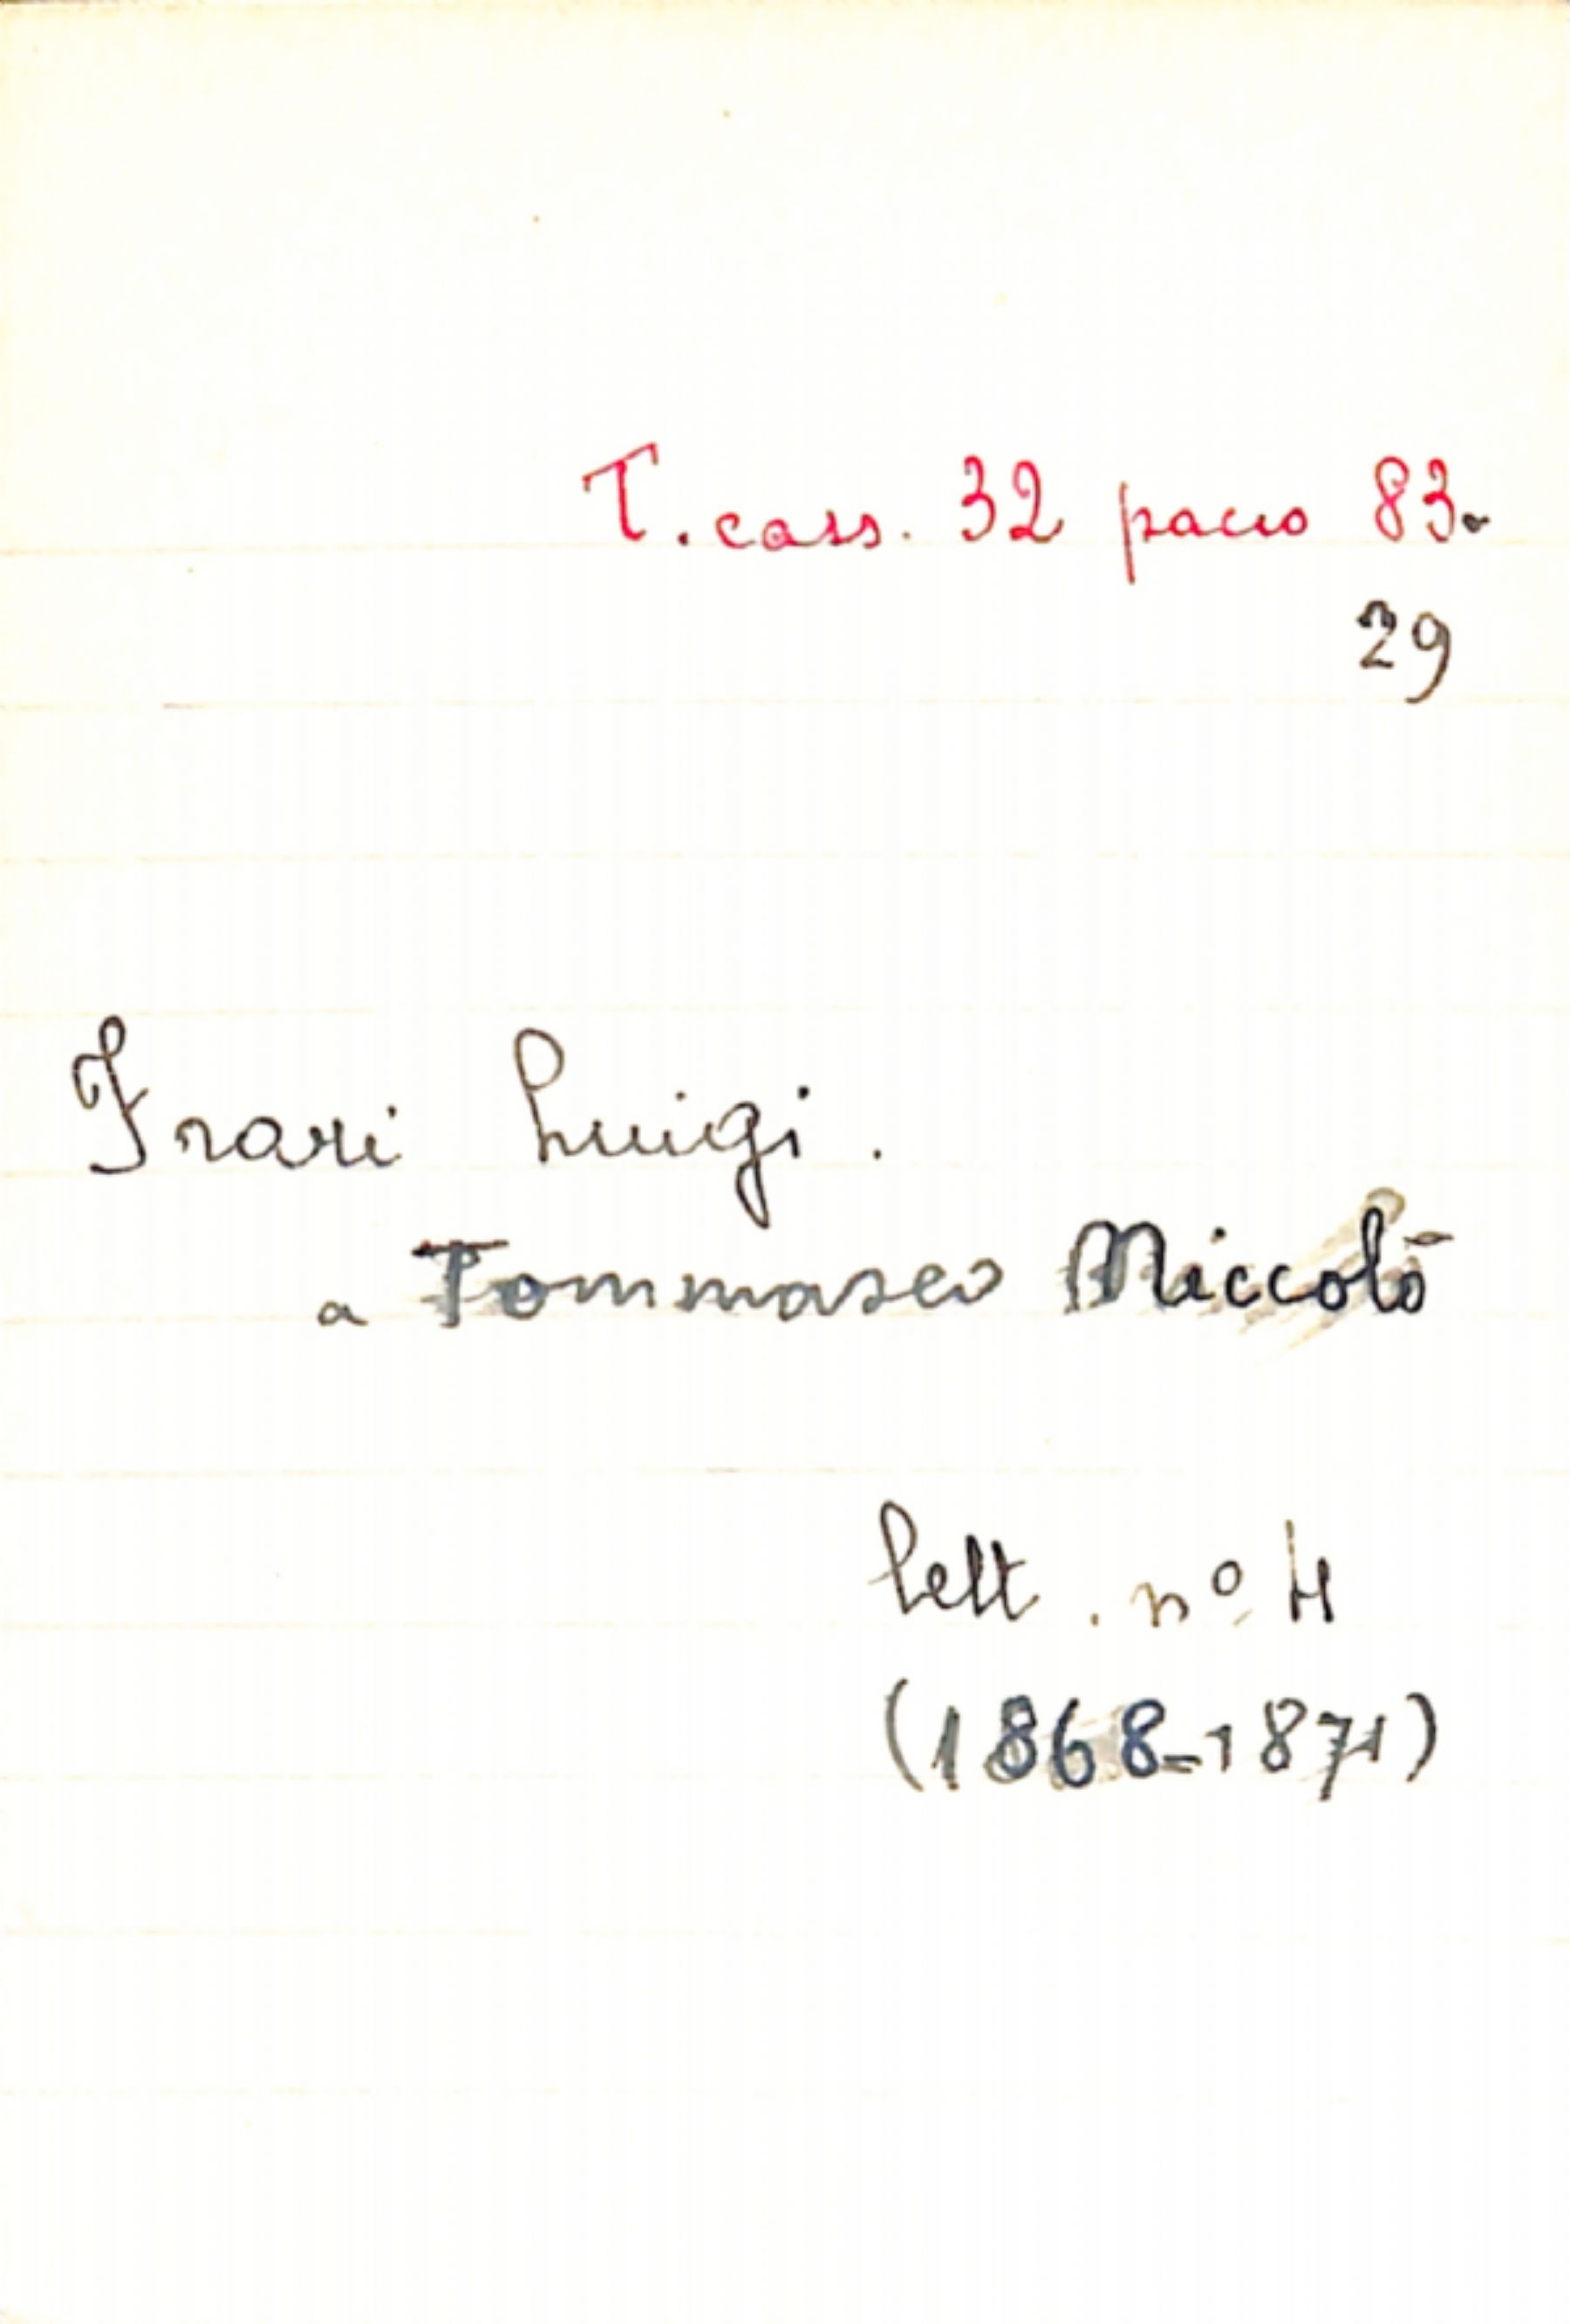 T. cass. 32 pacco 83.
29
Frari Luigi.
a Tommaseo Niccolò
lett. nº 4
(1868-1871)